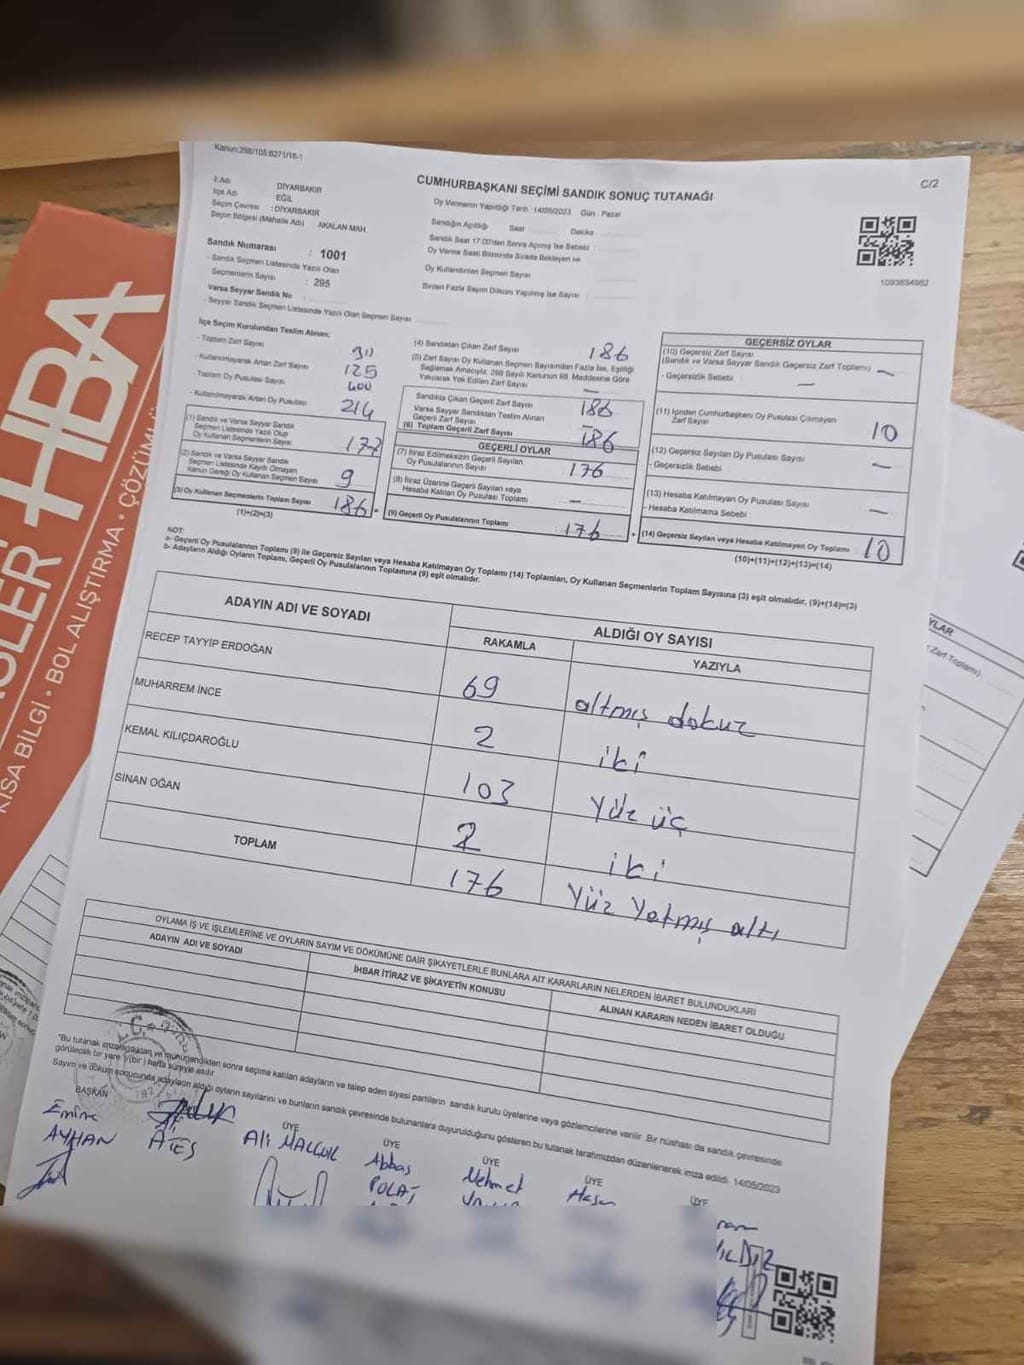 Kanun:298/105,6271/16-1
C/2
CUMHURBAŞKANI SEÇİMİ SANDIK SONUÇ TUTANAĞI
Oy Vermenin Yapıldığı Tarih :14/05/2023 Gün : Pazar
İl Adı DİYARBAKIR
İlçe Adı EĞİL
Seçim Çevresi : DİYARBAKIR
Seçim Bölgesi (Mahalle Adı) : AKALAN MAH
Sandık Numarası : 1001
- Sandık Seçmen Listesinde Yazılı Olan
Seçmenlerin Sayısı : 295
Varsa Seyyar Sandık No :
- Seyyar Sandık Seçmen Listesinde Yazılı Olan Seçmen Sayısı
Sandığın Açıldığı Saat Dakika
Sandık Saat 17:00'den Sonra Açılmış İse Sebebi :
Oy Verme Saati Bitiminde Sırada Bekleyen ve
Oy Kullandırılan Seçmen Sayısı
Birden Fazla Sayım Döküm Yapılmış İse Sayısı :
1093634982
İlçe Seçim Kurulundan Teslim Alınan;
- Toplam Zarf Sayısı 311
- Kullanılmayarak Artan Zarf Sayısı 125
- Toplam Oy Pusulası Sayısı 400
- Kullanılmayarak Artan Oy Pusulası 214
(1) Sandık ve Varsa Seyyar Sandık
Seçmen Listesinde Yazılı Olup
Oy Kullanan Seçmenlerin Sayısı 177
(2) Sandık ve Varsa Seyyar Sandık
Seçmen Listesinde Kayıtlı Olmayan
Kanun Gereği Oy Kullanan Seçmen Sayısı 9
(3) Oy Kullanan Seçmenlerin Toplam Sayısı 186 =
(1)+(2)=(3)
(4) Sandıktan Çıkan Zarf Sayısı 186
(5) Zarf Sayısı Oy Kullanan Seçmen Sayısından Fazla İse, Eşitliği
Sağlamak Amacıyla, 298 Sayılı Kanunun 98. Maddesine Göre
Yakılarak Yok Edilen Zarf Sayısı —
Sandıkta Çıkan Geçerli Zarf Sayısı 186
Varsa Seyyar Sandıktan Teslim Alınan
Geçerli Zarf Sayısı —
(6) Toplam Geçerli Zarf Sayısı 186
GEÇERLİ OYLAR
(7) İtiraz Edilmeksizin Geçerli Sayılan
Oy Pusulalarının Sayısı 176
(8) İtiraz Üzerine Geçerli Sayılan veya
Hesaba Katılan Oy Pusulası Toplamı —
(9) Geçerli Oy Pusulalarının Toplamı 176 +
GEÇERSİZ OYLAR
(10) Geçersiz Zarf Sayısı
(Sandık ve Varsa Seyyar Sandık Geçersiz Zarf Toplamı) —
- Geçersizlik Sebebi : —
(11) İçinden Cumhurbaşkanı Oy Pusulası Çıkmayan
Zarf Sayısı 10
(12) Geçersiz Sayılan Oy Pusulası Sayısı —
- Geçersizlik Sebebi
(13) Hesaba Katılmayan Oy Pusulası Sayısı —
- Hesaba Katılmama Sebebi :
(14) Geçersiz Sayılan veya Hesaba Katılmayan Oy Toplamı 10
(10)+(11)+(12)+(13)=(14)
NOT:
a- Geçerli Oy Pusulalarının Toplamı (9) ile Geçersiz Sayılan veya Hesaba Katılmayan Oy Toplamı (14) Toplamları, Oy Kullanan Seçmenlerin Toplam Sayısına (3) eşit olmalıdır. (9)+(14)=(3)
b- Adayların Aldığı Oyların Toplamı, Geçerli Oy Pusulalarının Toplamına (9) eşit olmalıdır.
ADAYIN ADI VE SOYADI
ALDIĞI OY SAYISI
RAKAMLA YAZIYLA
RECEP TAYYİP ERDOĞAN 69 altmış dokuz
MUHARREM İNCE 2 iki
KEMAL KILIÇDAROĞLU 103 Yüz üç
SİNAN OĞAN 2 iki
TOPLAM 176 Yüz Yetmiş altı
OYLAMA İŞ VE İŞLEMLERİNE VE OYLARIN SAYIM VE DÖKÜMÜNE DAİR ŞİKAYETLERLE BUNLARA AİT KARARLARIN NELERDEN İBARET BULUNDUKLARI
ADAYIN ADI VE SOYADI İHBAR İTİRAZ VE ŞİKAYETİN KONUSU ALINAN KARARIN NEDEN İBARET OLDUĞU
*Bu tutanak imzalandıktan ve mühürlendikten sonra seçime katılan adayların ve talep eden siyasi partilerin sandık kurulu üyelerine veya gözlemcilerine verilir .Bir nüshası da sandık çevresinde
görülecek bir yere 1(bir ) hafta süreyle asılır
Sayım ve döküm sonucunda adayların aldığı oyların sayılarını ve bunların sandık çevresinde bulunanlara duyurulduğunu gösteren bu tutanak tarafımızdan düzenlenerek imza edildi. 14/05/2023
BAŞKAN ÜYE ÜYE ÜYE ÜYE ÜYE
Emine
AYHAN
ATEŞ
Ali
Abbas
POLAT
Mehmet
Hasan
HBA
KISA BİLGİ • BOL ALIŞTIRMA • ÇÖZÜML
YLAR
Zarf Toplamı)